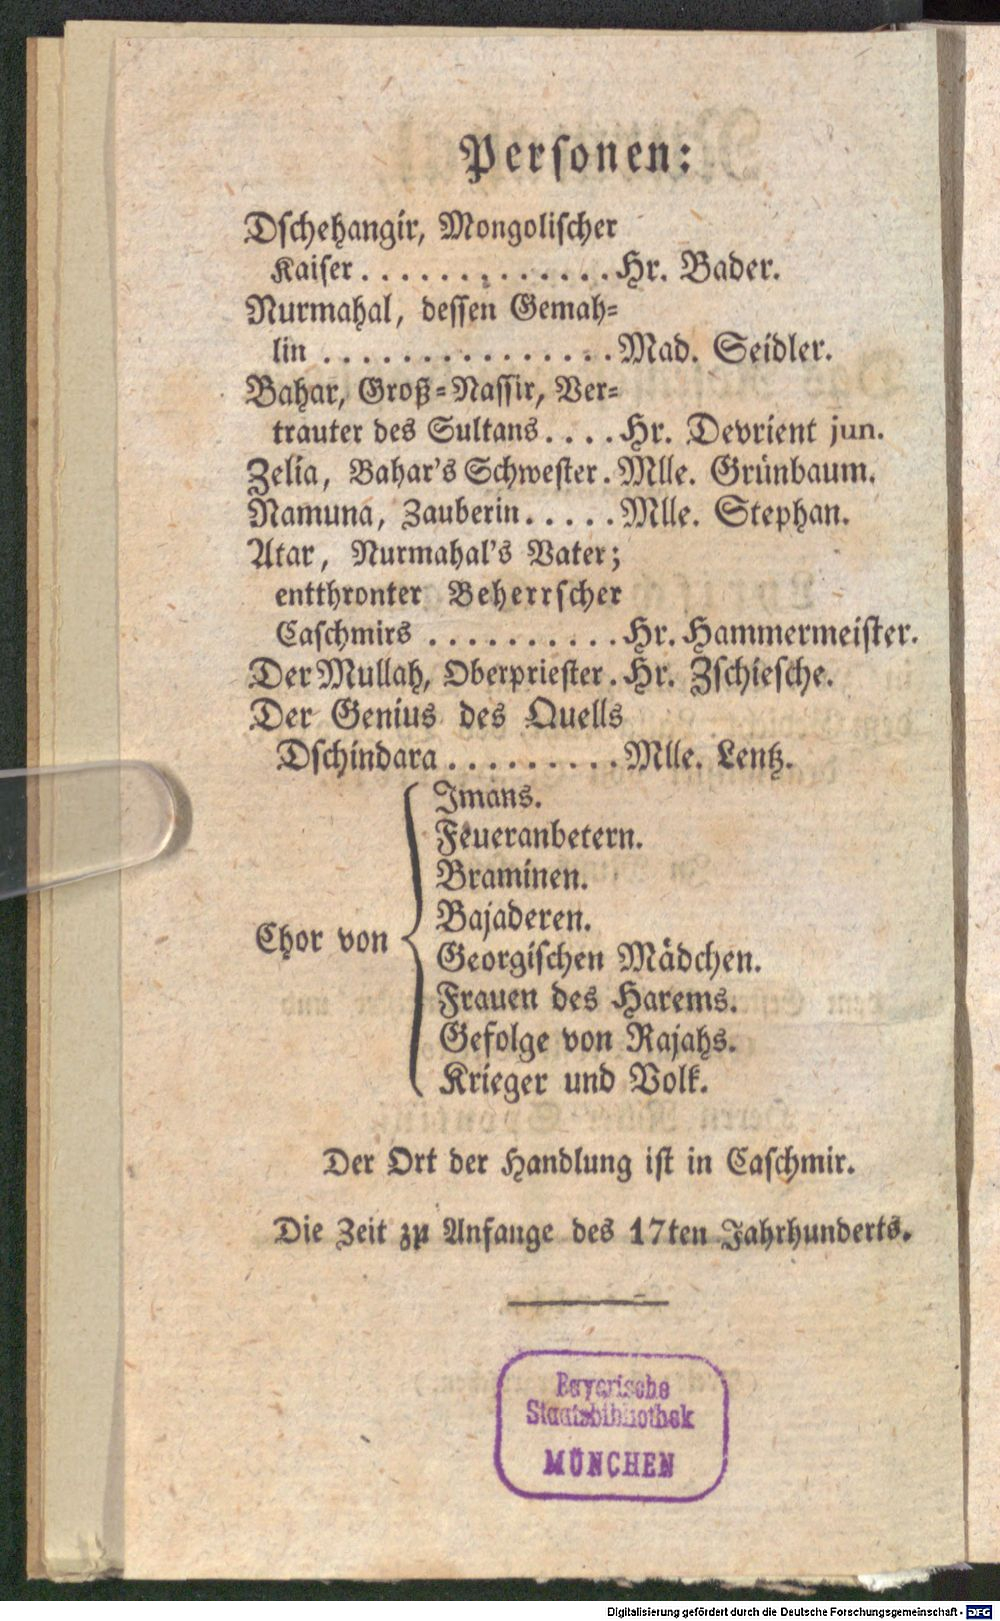 Personen:
Dschehangir, Mongolischer
Kaiser.............Hr. Bader.
Nurmahal, dessen Gemah-
lin ...............Mad. Seidler.
Bahar, Groß-Nassir, Ver-
trauter des Sultans....Hr. Devrient jun.
Zelia, Bahar's Schwester.Mlle. Grünbaum.
Namuna, Zauberin.....Mlle. Stephan.
Atar, Nurmahal's Vater;
entthronter Beherrscher
Caschmirs ..........Hr. Hammermeister.
Der Mullah, Oberpriester.Hr. Zschiesche.
Der Genius des Quells
Dschindara.........Mlle. Lentz.
Chor von
Imans.
Feueranbetern.
Braminen.
Bajaderen.
Georgischen Mädchen.
Frauen des Harems.
Gefolge von Rajahs.
Krieger und Volk.
Der Ort der Handlung ist in Caschmir.
Die Zeit zu Anfange des 17ten Jahrhunderts.
Bayerische
Staatsbibliothek
MÜNCHEN
Digitalisierung gefördert durch die Deutsche Forschungsgemeinschaft - DFG